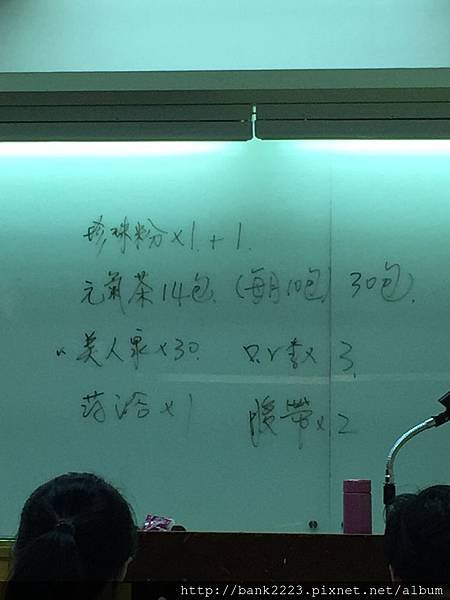 珍珠粉x1+1.
元氣茶14包. (每月10包) 30包).
美人泉x30. x 3.
x1 腹帶x2
http://bank2223.pixnet.net/album